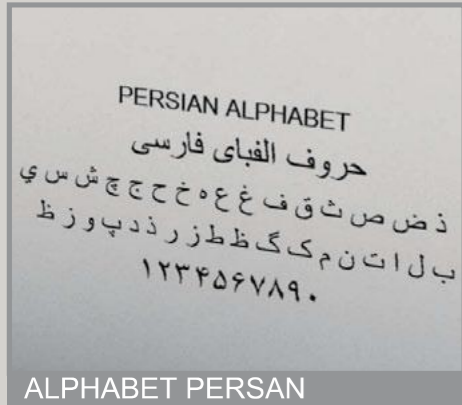 PERSIAN ALPHABET
حروف الفبای فارسی
ذ ض ص ث ق ف غ ع ه خ ح ج چ ش س ي
ب ل ا ت ن م ک گ ظ ط ز ر ذ د پ و ز ظ
۱۲۳۴۵۶۷۸۹۰
ALPHABET PERSAN